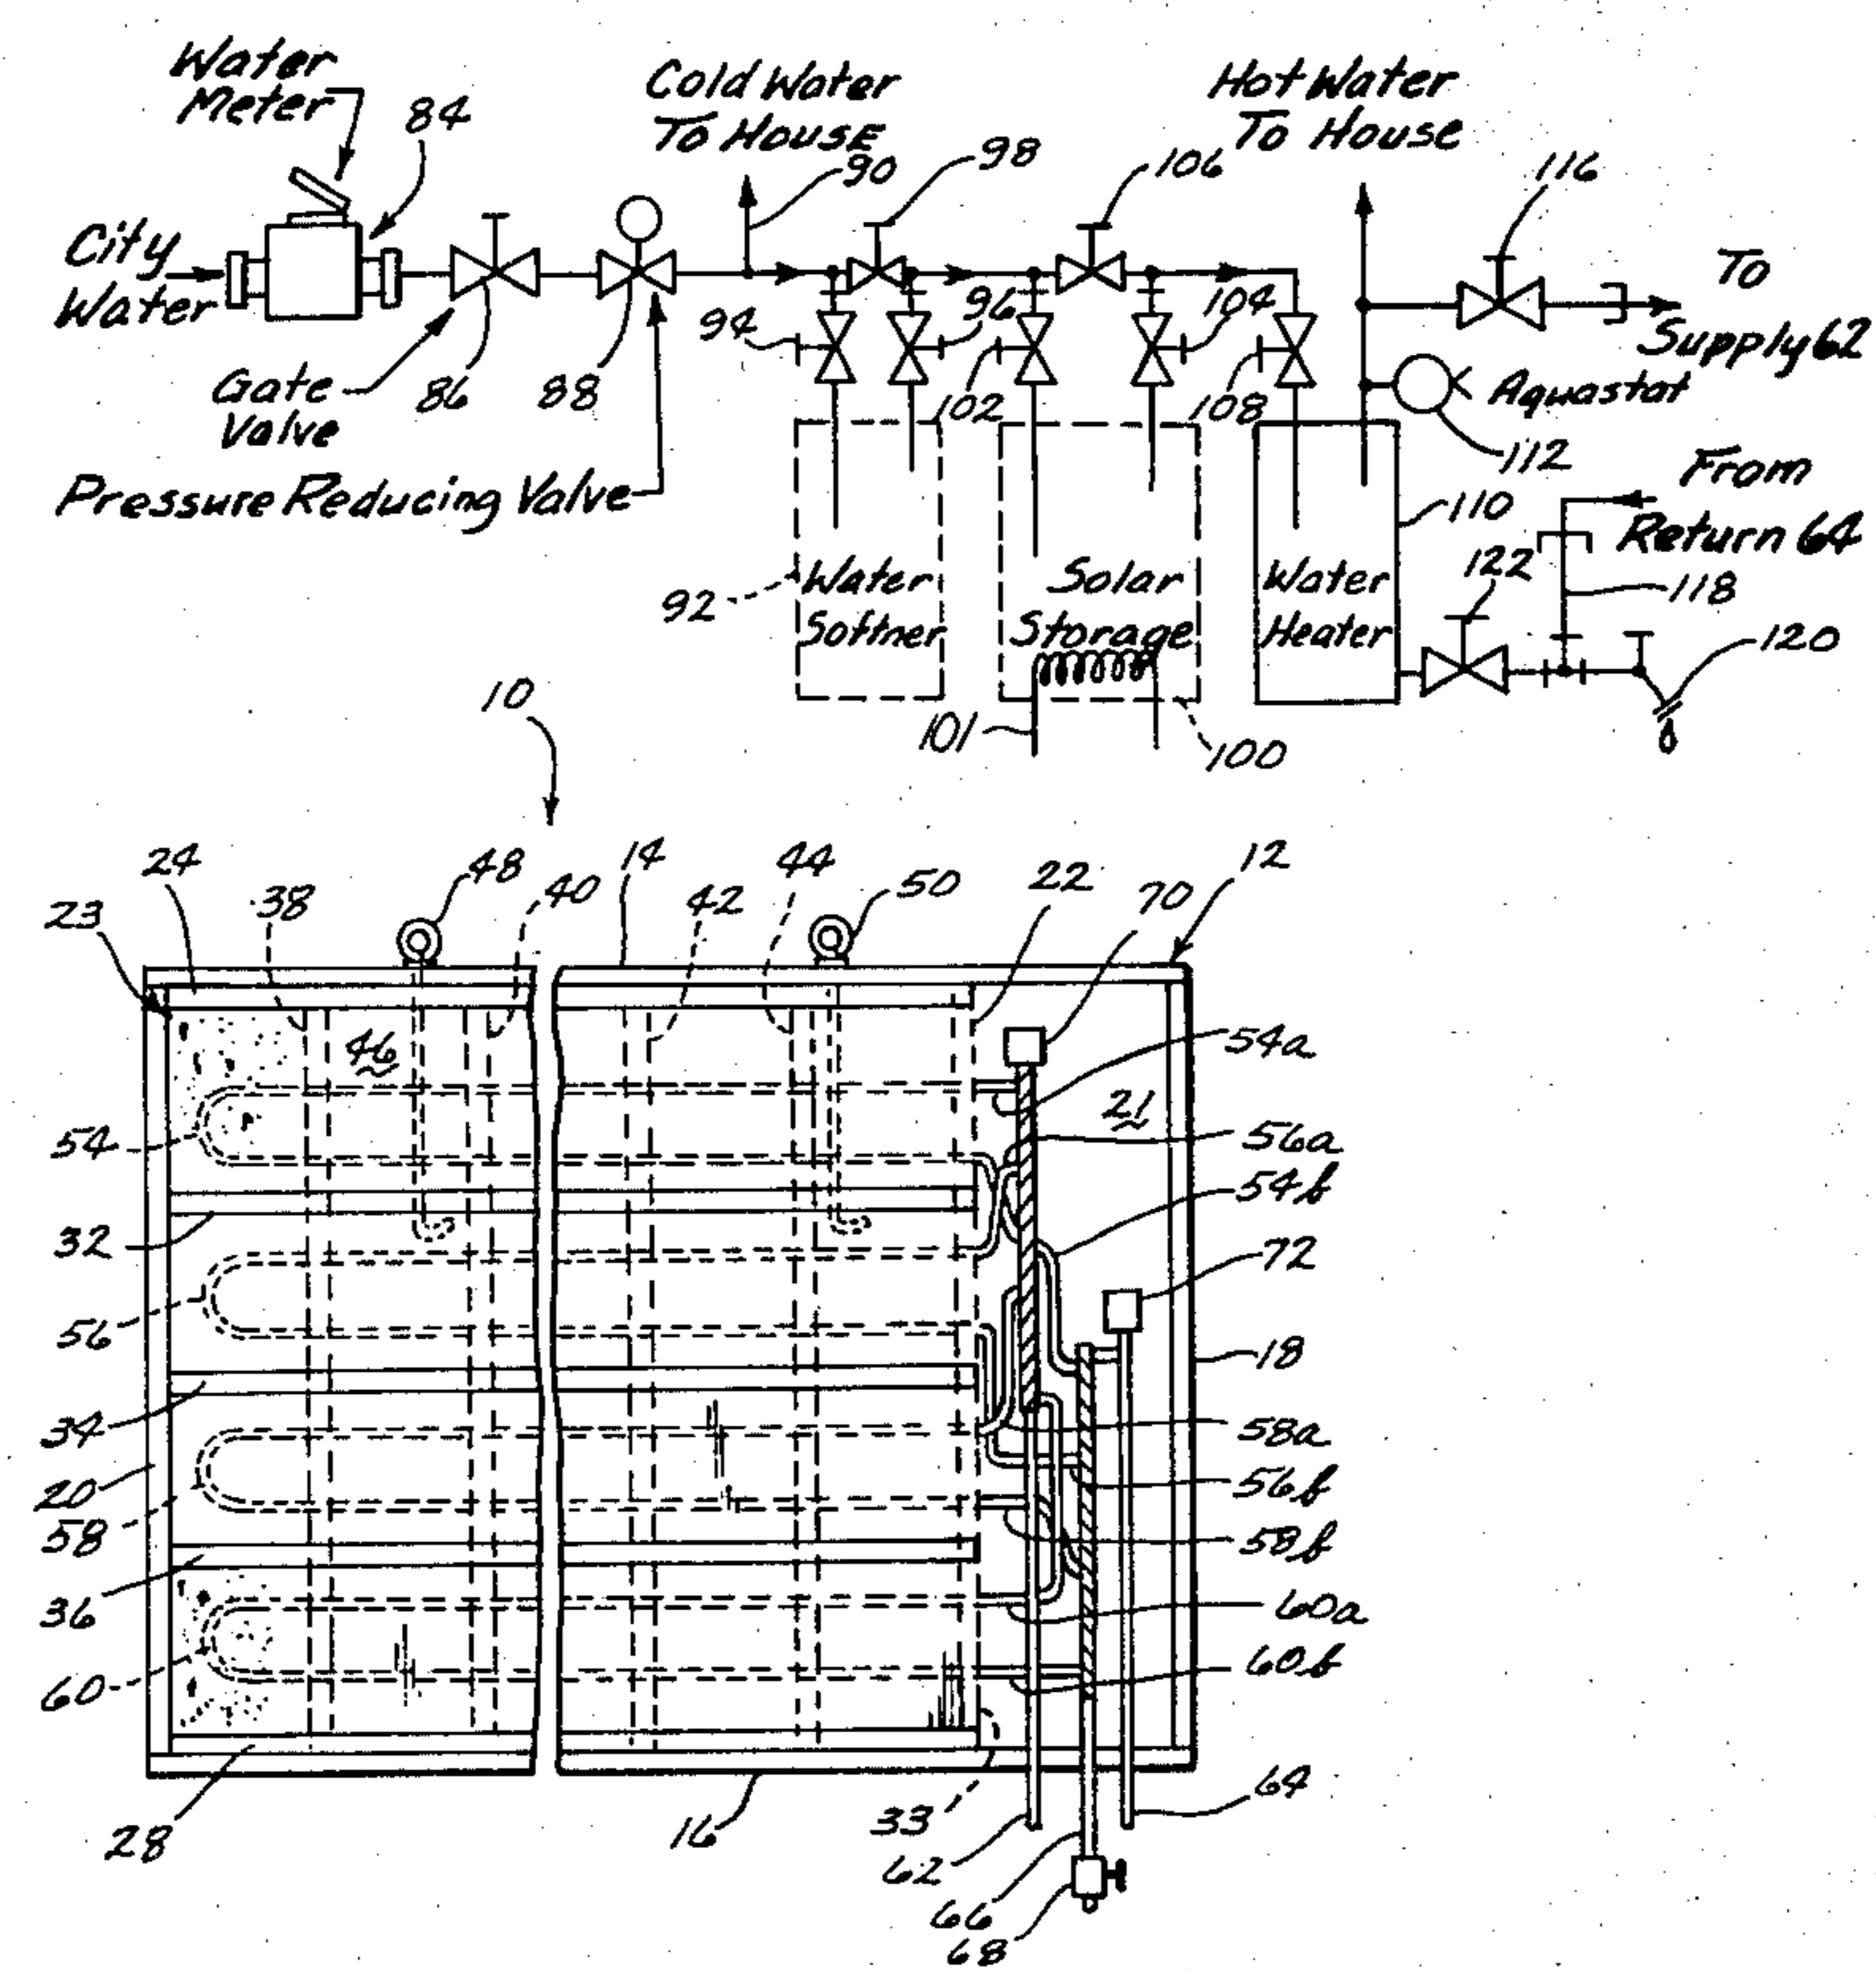 Water
Meter
84
Cold Water
To House
90
98
Hot Water
To House
106
116
City
Water
To
Supply 62
94
96
104
Gate
Valve
86
88
102
108
Aquastat
112
Pressure Reducing Valve
110
From
Return 64
92
Water
Softner
Solar
Storage
Water
Heater
122
118
120
101
100
10
24
48
14
44
50
22
12
23
38
40
42
70
46
54a
21
54
56a
54b
32
72
56
18
34
58a
20
56b
58
58b
36
60a
60
60b
28
16
33
64
62
66
68